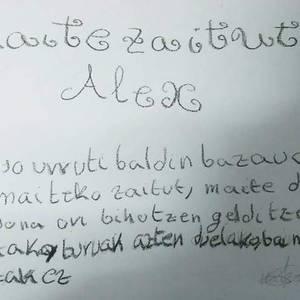 maite zaitut
Alex
so urruti baldin bazau
maitzko zaitut, maite d
dona ori bihotzen gelditz
zako, buruan azten duelako, bai
zak ez